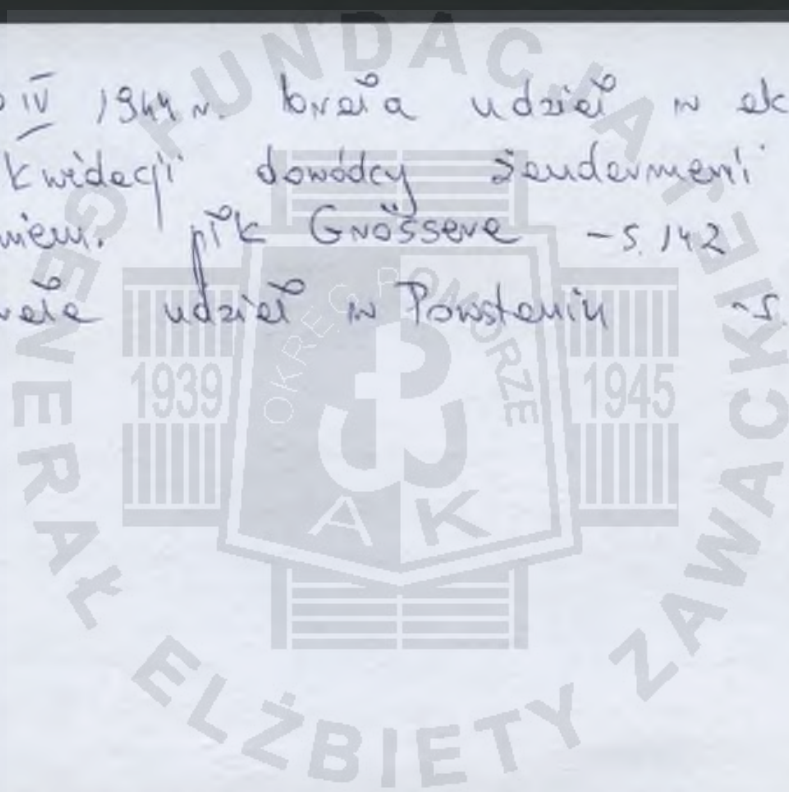 IV 1944 r. brała udział w ak
kwidacji dowódcy żandarmerii
niem. płk Grössera - s. 142
rała udział w Powstaniu - s.
FUNDACJA GENERAŁ ELŻBIETY ZAWACKIEJ
OKRĘG POMORZE
1939 1945
AK